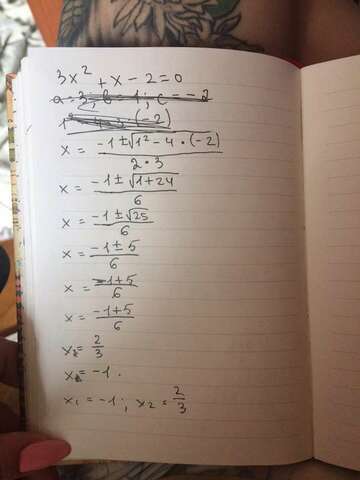 3x² + x - 2 = 0
a = 3; b = 1; c = -2
x = (-1 ± √(1² - 4 · (-2))) / (2 · 3)
x = (-1 ± √(1 + 24)) / 6
x = (-1 ± √25) / 6
x = (-1 ± 5) / 6
x = (-1 + 5) / 6
x = (-1 + 5) / 6
x₂ = 2/3
x = -1.
x₁ = -1; x₂ = 2/3